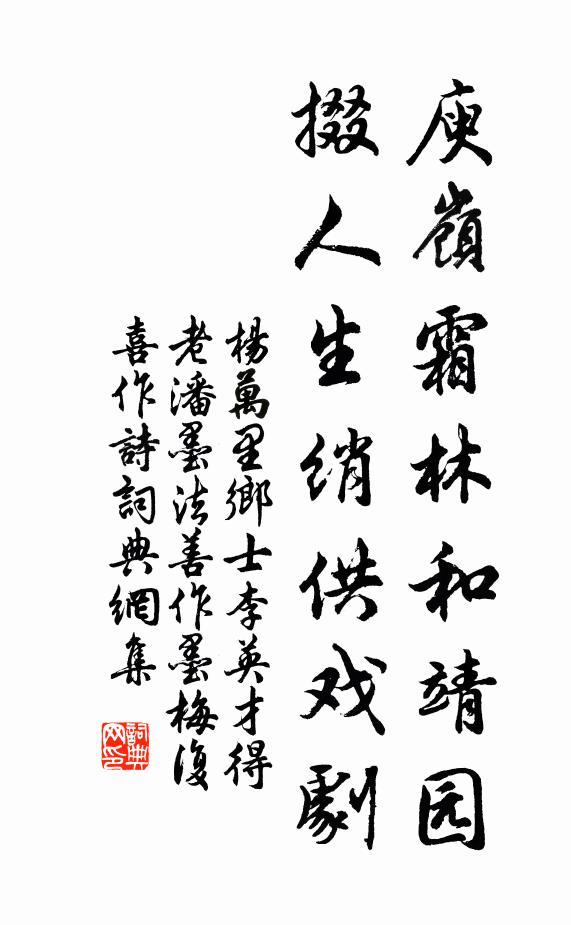 庾嶺霜林和靖园
掇人生绡供戏劇
楊萬里鄉士李英才得
老潘墨法善作墨梅復
喜作詩詞典網集
詞典
网印